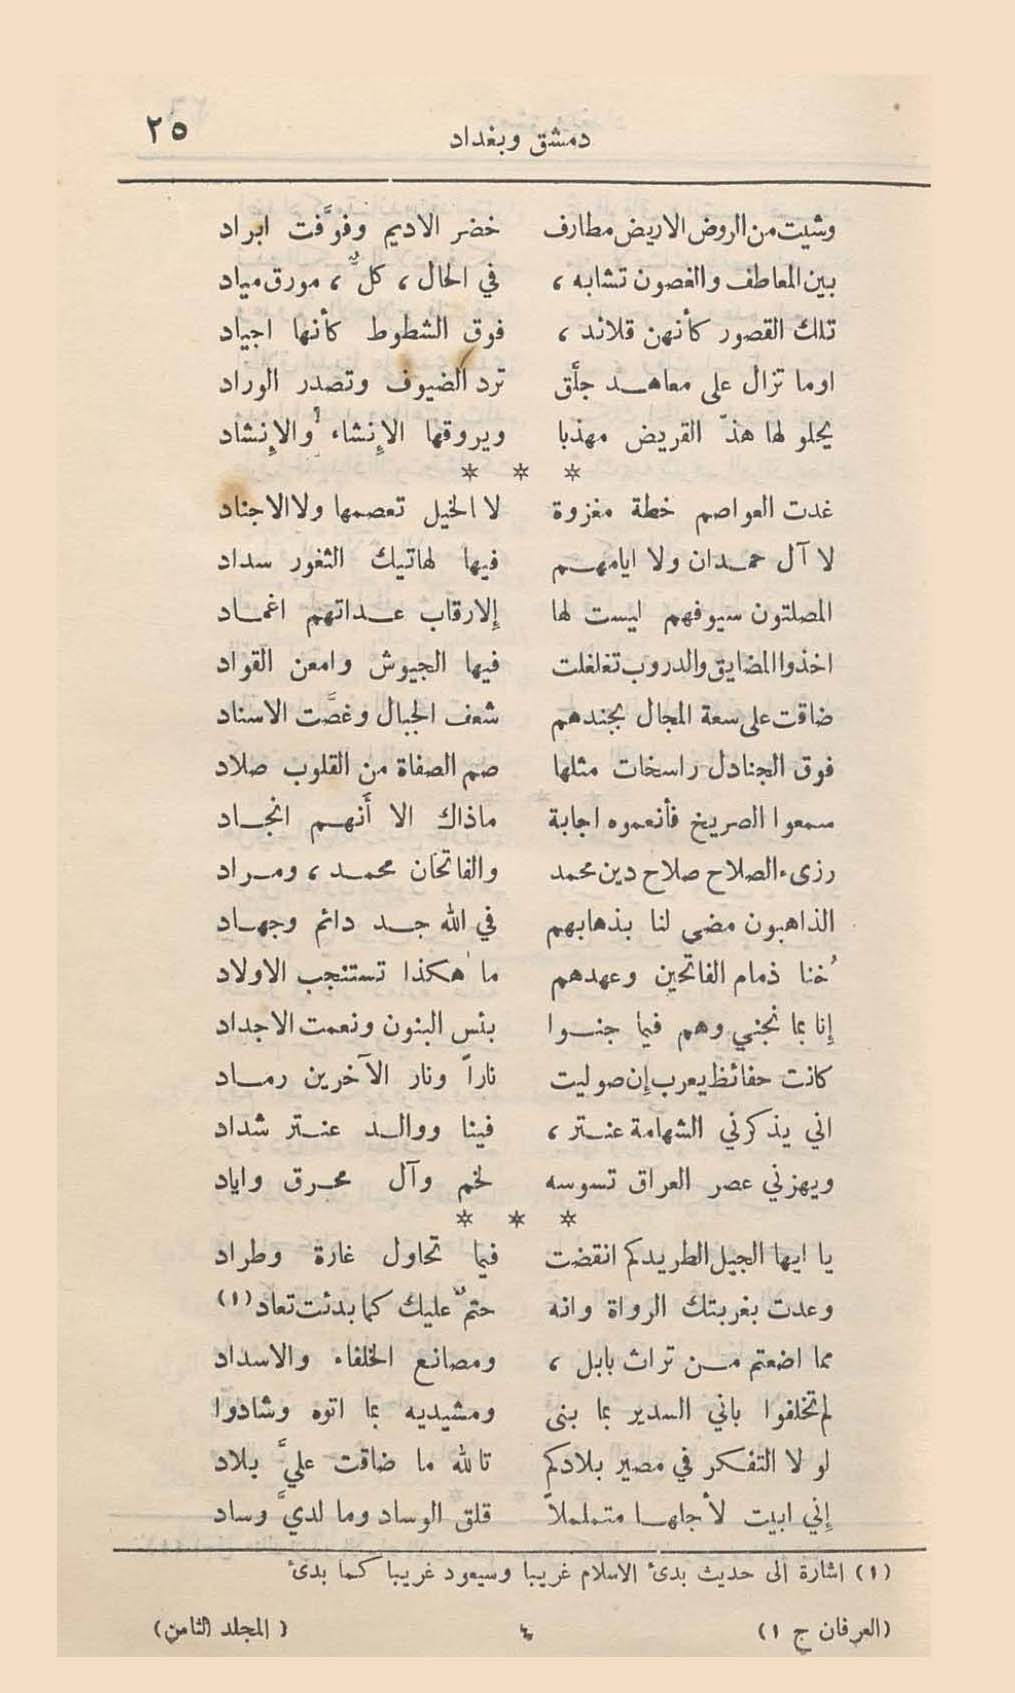 دمشق وبغداد ٢٥
وشيت من الروض الاريض مطارف خضر الاديم وفوَّفت ابراد
بين المعاطف والغصون تشابه ، في الحال ، كلٌّ ، مورق مياد
تلك القصور كأنهن قلائد ، فوق الشطوط كأنها اجياد
اوما تزال على معاهد جلّق ترد الضيوف وتصدر الوراد
يحلو لها هذّ القريض مهذبا ويروقها الإنشاء والإنشاد
* * *
غدت العواصم خطة مغزوة لا الخيل تعصمها ولا الاجناد
لا آل حمدان ولا ايامهم فيها لهاتيك الثغور سداد
المصلتون سيوفهم ليست لها إلا رقاب عداتهم اغماد
اخذوا المضايق والدروب تغلغلت فيها الجيوش وامعن القواد
ضاقت على سعة المجال بجندهم شعف الجبال وغصَّت الاسناد
فوق الجنادل راسخات مثلها صم الصفاة من القلوب صلاد
سمعوا الصريخ فأنعموه اجابة ماذاك الا أنهم انجاد
رزىء الصلاح صلاح دين محمد والفاتحان محمد ، ومراد
الذاهبون مضى لنا بذهابهم في الله جد دائم وجهاد
خُنا ذمام الفاتحين وعهدهم ما هكذا تستنجب الاولاد
إنا بما نجني وهم فيما جنوا بئس البنون ونعمت الاجداد
كانت حفائظ يعرب إن صوليت ناراً ونار الآخرين رماد
اني يذكرني الشهامة عنتر ، فينا ووالد عنتر شداد
ويهزني عصر العراق تسوسه لخم وآل محرق واياد
* * *
يا ايها الجيل الطريدكم انقضت فيما تحاول غارة وطراد
وعدت بغربتك الرواة وانه حتمٌ عليك كما بدئت تعاد (١)
مما اضعتم من تراث بابل ، ومصانع الخلفاء والاسداد
لم تخلفوا باني السدير بما بنى ومشيديه بما اتوه وشادوا
لو لا التفكر في مصير بلادكم تالله ما ضاقت عليَّ بلاد
إني ابيت لأجلها متململاً قلق الوساد وما لديَّ وساد
(١) اشارة الى حديث بدئ الاسلام غريبا وسيعود غريبا كما بدئ
(العرفان ج ١) ٤ (المجلد الثامن)